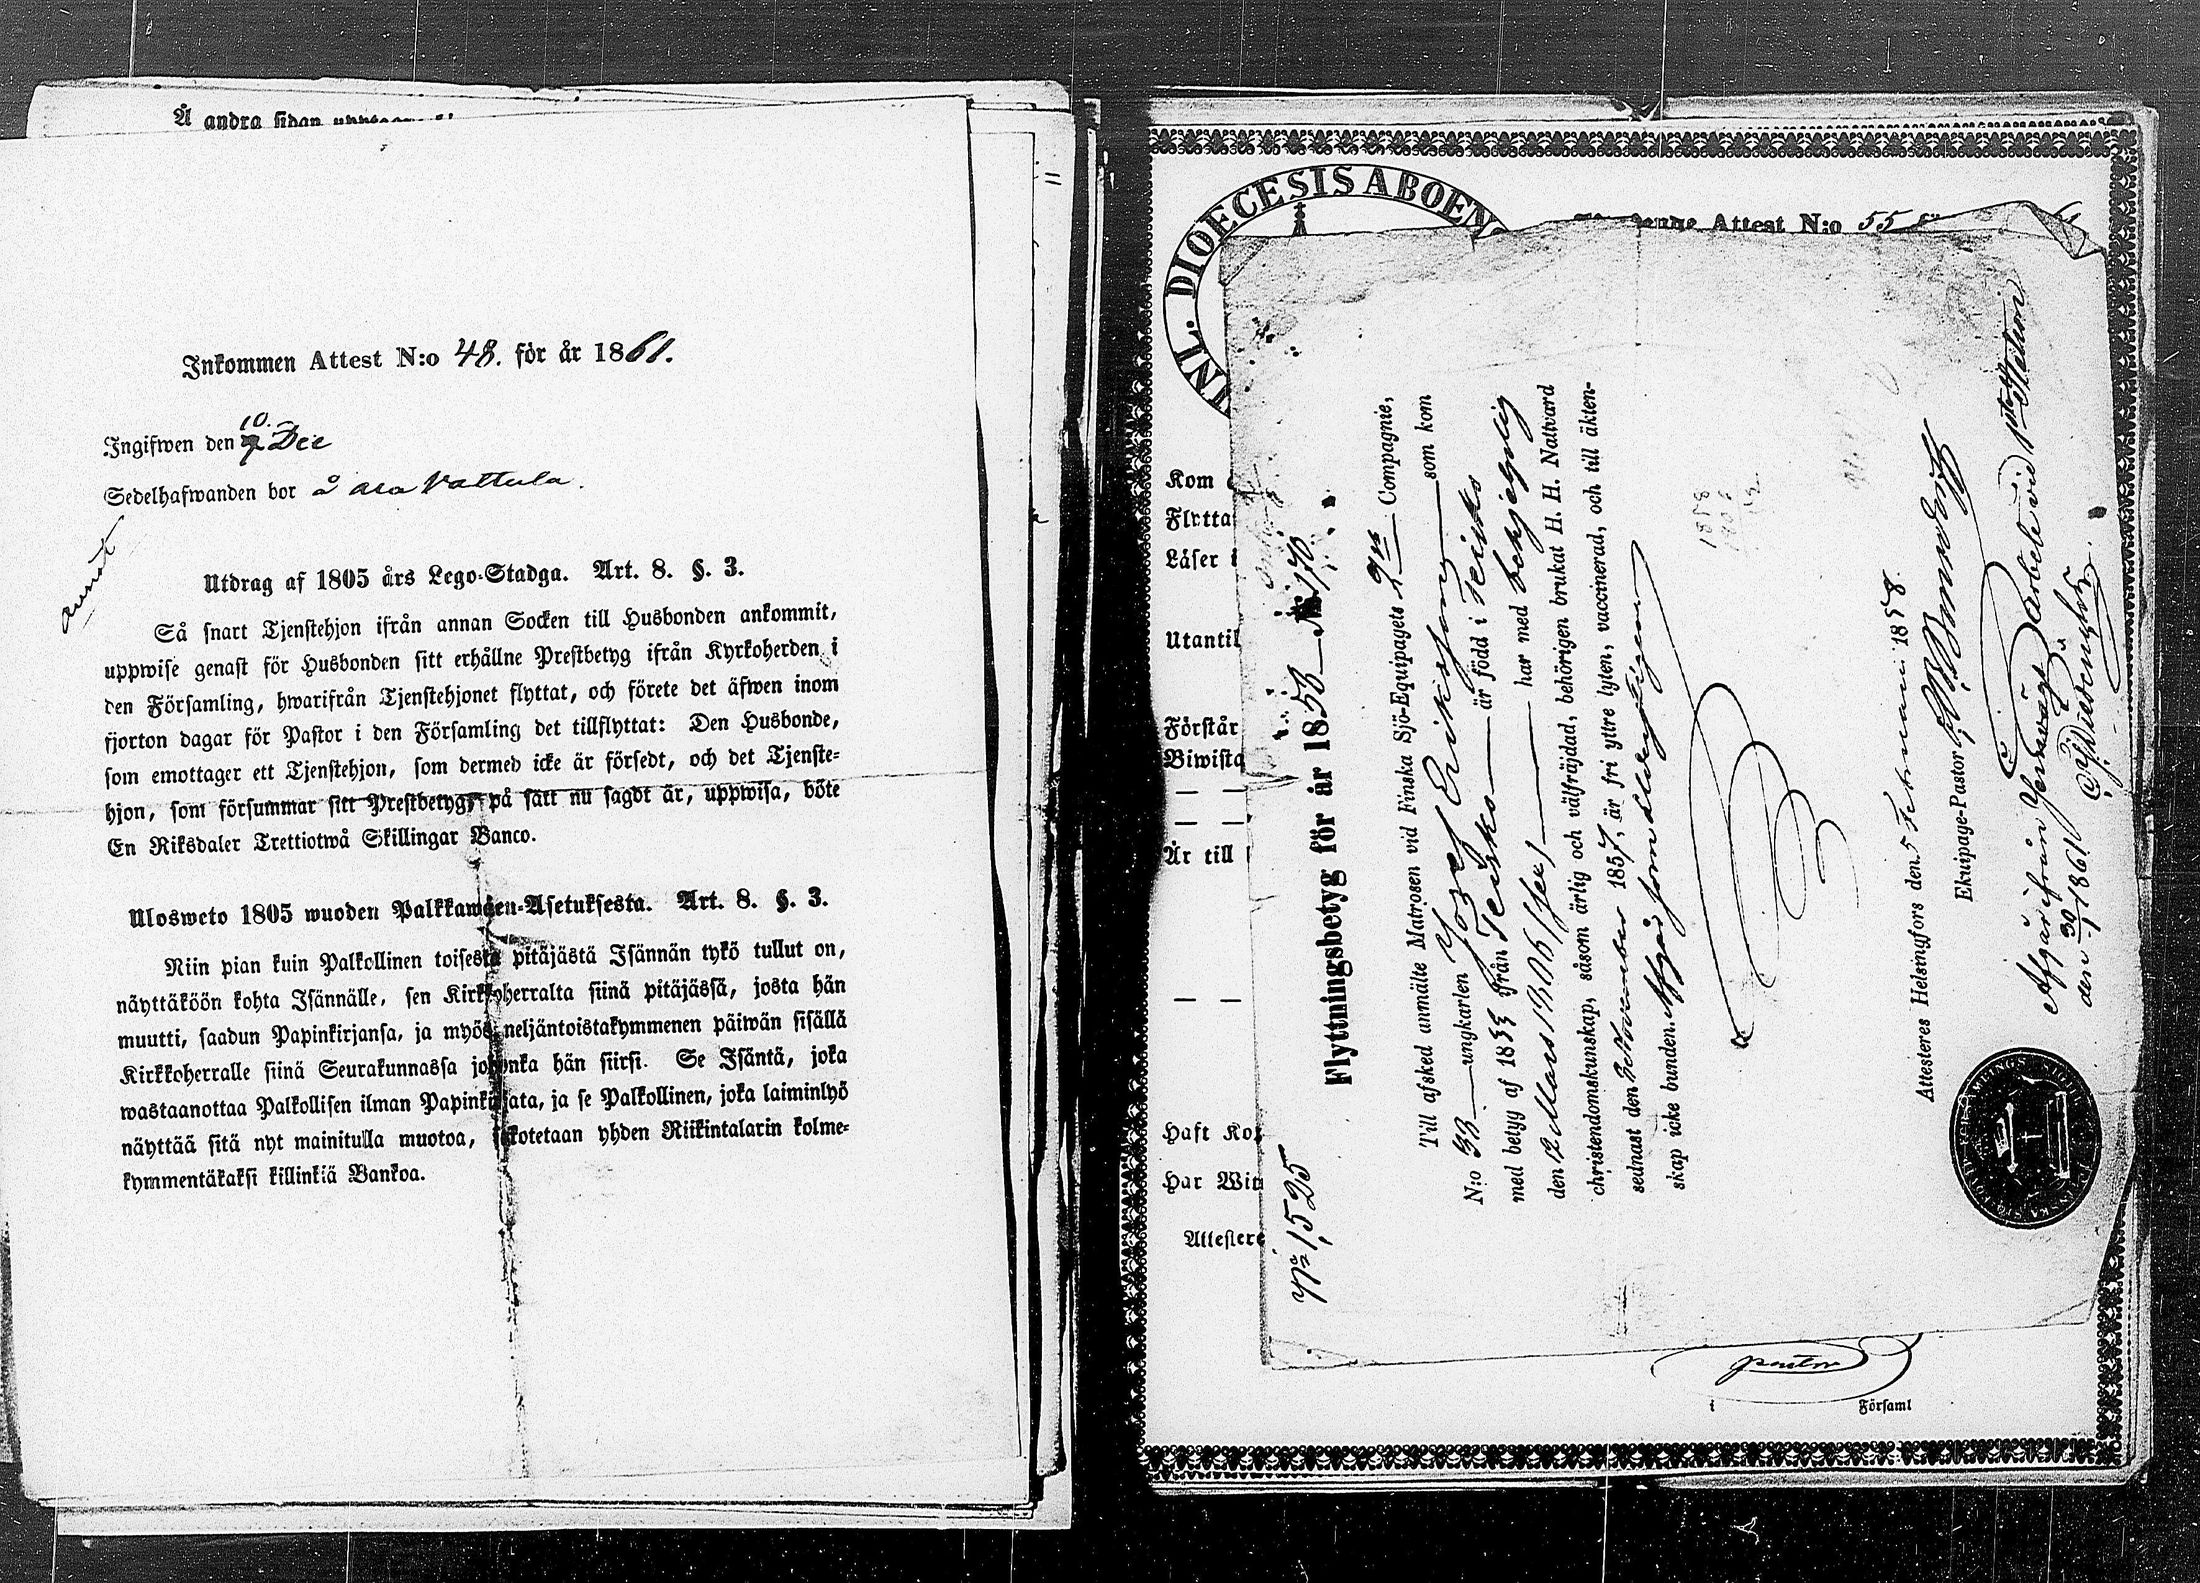 Å andra sidan
Inkommen Attest N:o 48. för år 1861.
10.
Ingifwen den 7 Dec
Sedelhafwanden bor å Ala Vattula.
Utdrag af 1805 års Lego-Stadga. Art. 8. §. 3.
Så snart Tjenstehjon ifrån annan Socken till Husbonden ankommit,
uppwise genast för Husbonden sitt erhållne Prestbetyg ifrån Kyrkoherden i
den Församling, hwarifrån Tjenstehjonet flyttat, och förete det äfwen inom
fjorton dagar för Pastor i den Församling det tillflyttat: Den Husbonde,
som emottager ett Tjenstehjon, som dermed icke är försedt, och det Tjenste-
hjon, som försummar sitt Prestbetyg, på sätt nu sagdt är, uppwisa, böte
En Riksdaler Trettiotwå Skillingar Banco.
Ulosweto 1805 wuoden Palkkawäen-Asetuksesta. Art. 8. §. 3.
Niin pian kuin Palkollinen toisesta pitäjästä Isännän tykö tullut on,
näyttäköön kohta Isännälle, sen Kirkkoherralta siinä pitäjässä, josta hän
muutti, saadun Papinkirjansa, ja myös neljäntoistakymmenen päiwän sisällä
Kirkkoherralle siinä Seurakunnassa johonka hän siirsi. Se Isäntä, joka
wastaanottaa Palkollisen ilman Papinkirjata, ja se Palkollinen, joka laiminlyö
näyttää sitä nyt mainitulla muotoa, sakotetaan yhden Riikintalarin kolme-
kymmentäkaksi killinkiä Bankoa.
NL. DIOECESIS ABOEN
Attest N:o 55
Kom
Flytta
Läser i
Utantil
Förstår
Biwista
Är till
Haft Ko
Har Wit
Attestere
pastor
i Församl
No 1,525
Flyttningsbetyg för år 1858 No 170
Till afsked anmälte Matrosen vid Finska Sjö-Equipagets 2dra Compagnie,
N:o 33 ungkarlen Josef Eriksson som kom
med betyg af 1855 från Teisko är född i Teisko
den 12 Mars 1806 (sex) har med behjelplig
christendomskunskap, såsom ärlig och välfräjdad, behörigen brukat H. H. Nattvard
sednast den 3e November 1857, är fri yttre lyten, vaccinerad, och till äkten-
skap icke bunden. Afgår
1858
Attesteres Helsingfors den 5 Februari 1858.
Ekuipage-Pastor
Afgår ifrån
den 30/1 1861